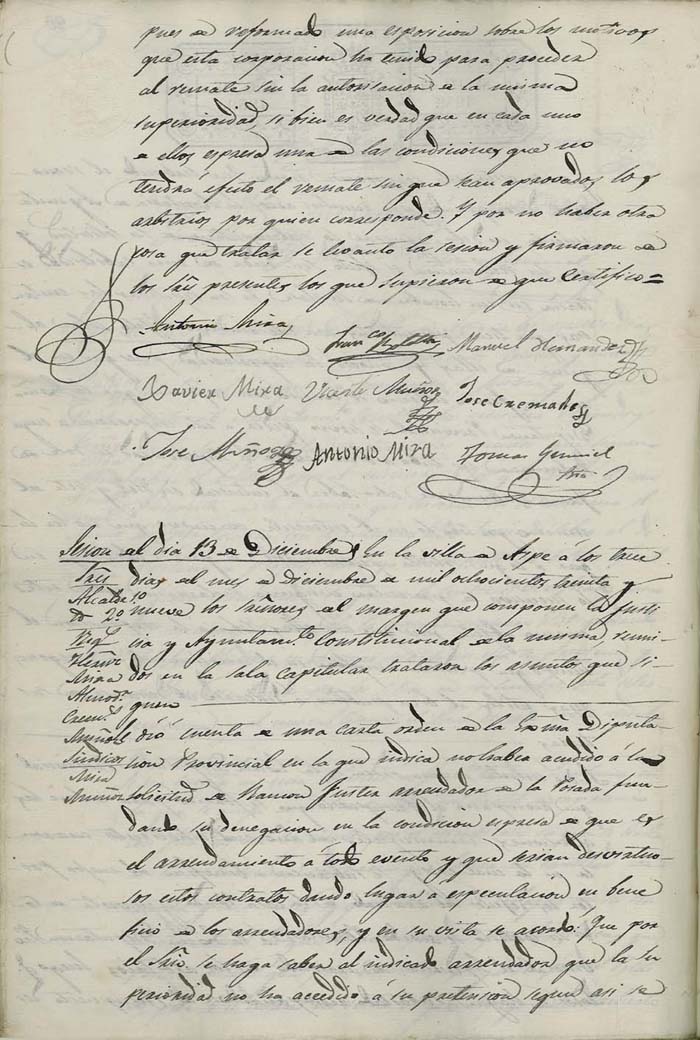 pues de reformado una esposicion sobre los motivos
que esta corporacion ha tenido para proceder
al remate sin la autorisacion de la misma
superioridad, si bien es verdad que en cada uno
de ellos espresa una de las condiciones que no
tendrá efecto el remate sin que sean aprovados los
arbitrios por quien corresponde. Y por no haber otra
cosa que tratar se levanto la sesion y firmaron de
los Sres presentes los que supieron de que Certifico=
Antonio Mira
Manuel Hernandez
Xavier Mira Vicente Muñoz Jose Cremades
Jose Muñoz Antonio Mira Tomas
Srio
Sesion del dia 13 de Diciembre En la villa de Aspe á los trece
Sres dias del mes de Diciembre de mil ochocientos treinta y
Alcalde 1o
2o nueve los Señores del margen que componen la Justi
cia y Ayuntamto Constitucional de la misma, reuni-
Mira dos en la Sala Capitular trataron los asuntos que si-
Almodr
Cremds guen
Muñoz dió cuenta de una carta orden de la Exma Diputa
Sindicos cion Provincial en la que indica no haber acudido á la
Mira
Muñoz solicitud de Ramon Juster arrendador de la Posada fun-
dando su denegacion en la condicion espresa de que es
el arrendamiento á todo evento y que serian desvirtuo-
sos estos contratos dando lugar á especulacion en bene
ficio de los arrendadores, y en su vista se acordó: Que por
el Srio. se haga saber al indicado arrendador que la Su
perioridad no ha accedido á su pretension segun asi se